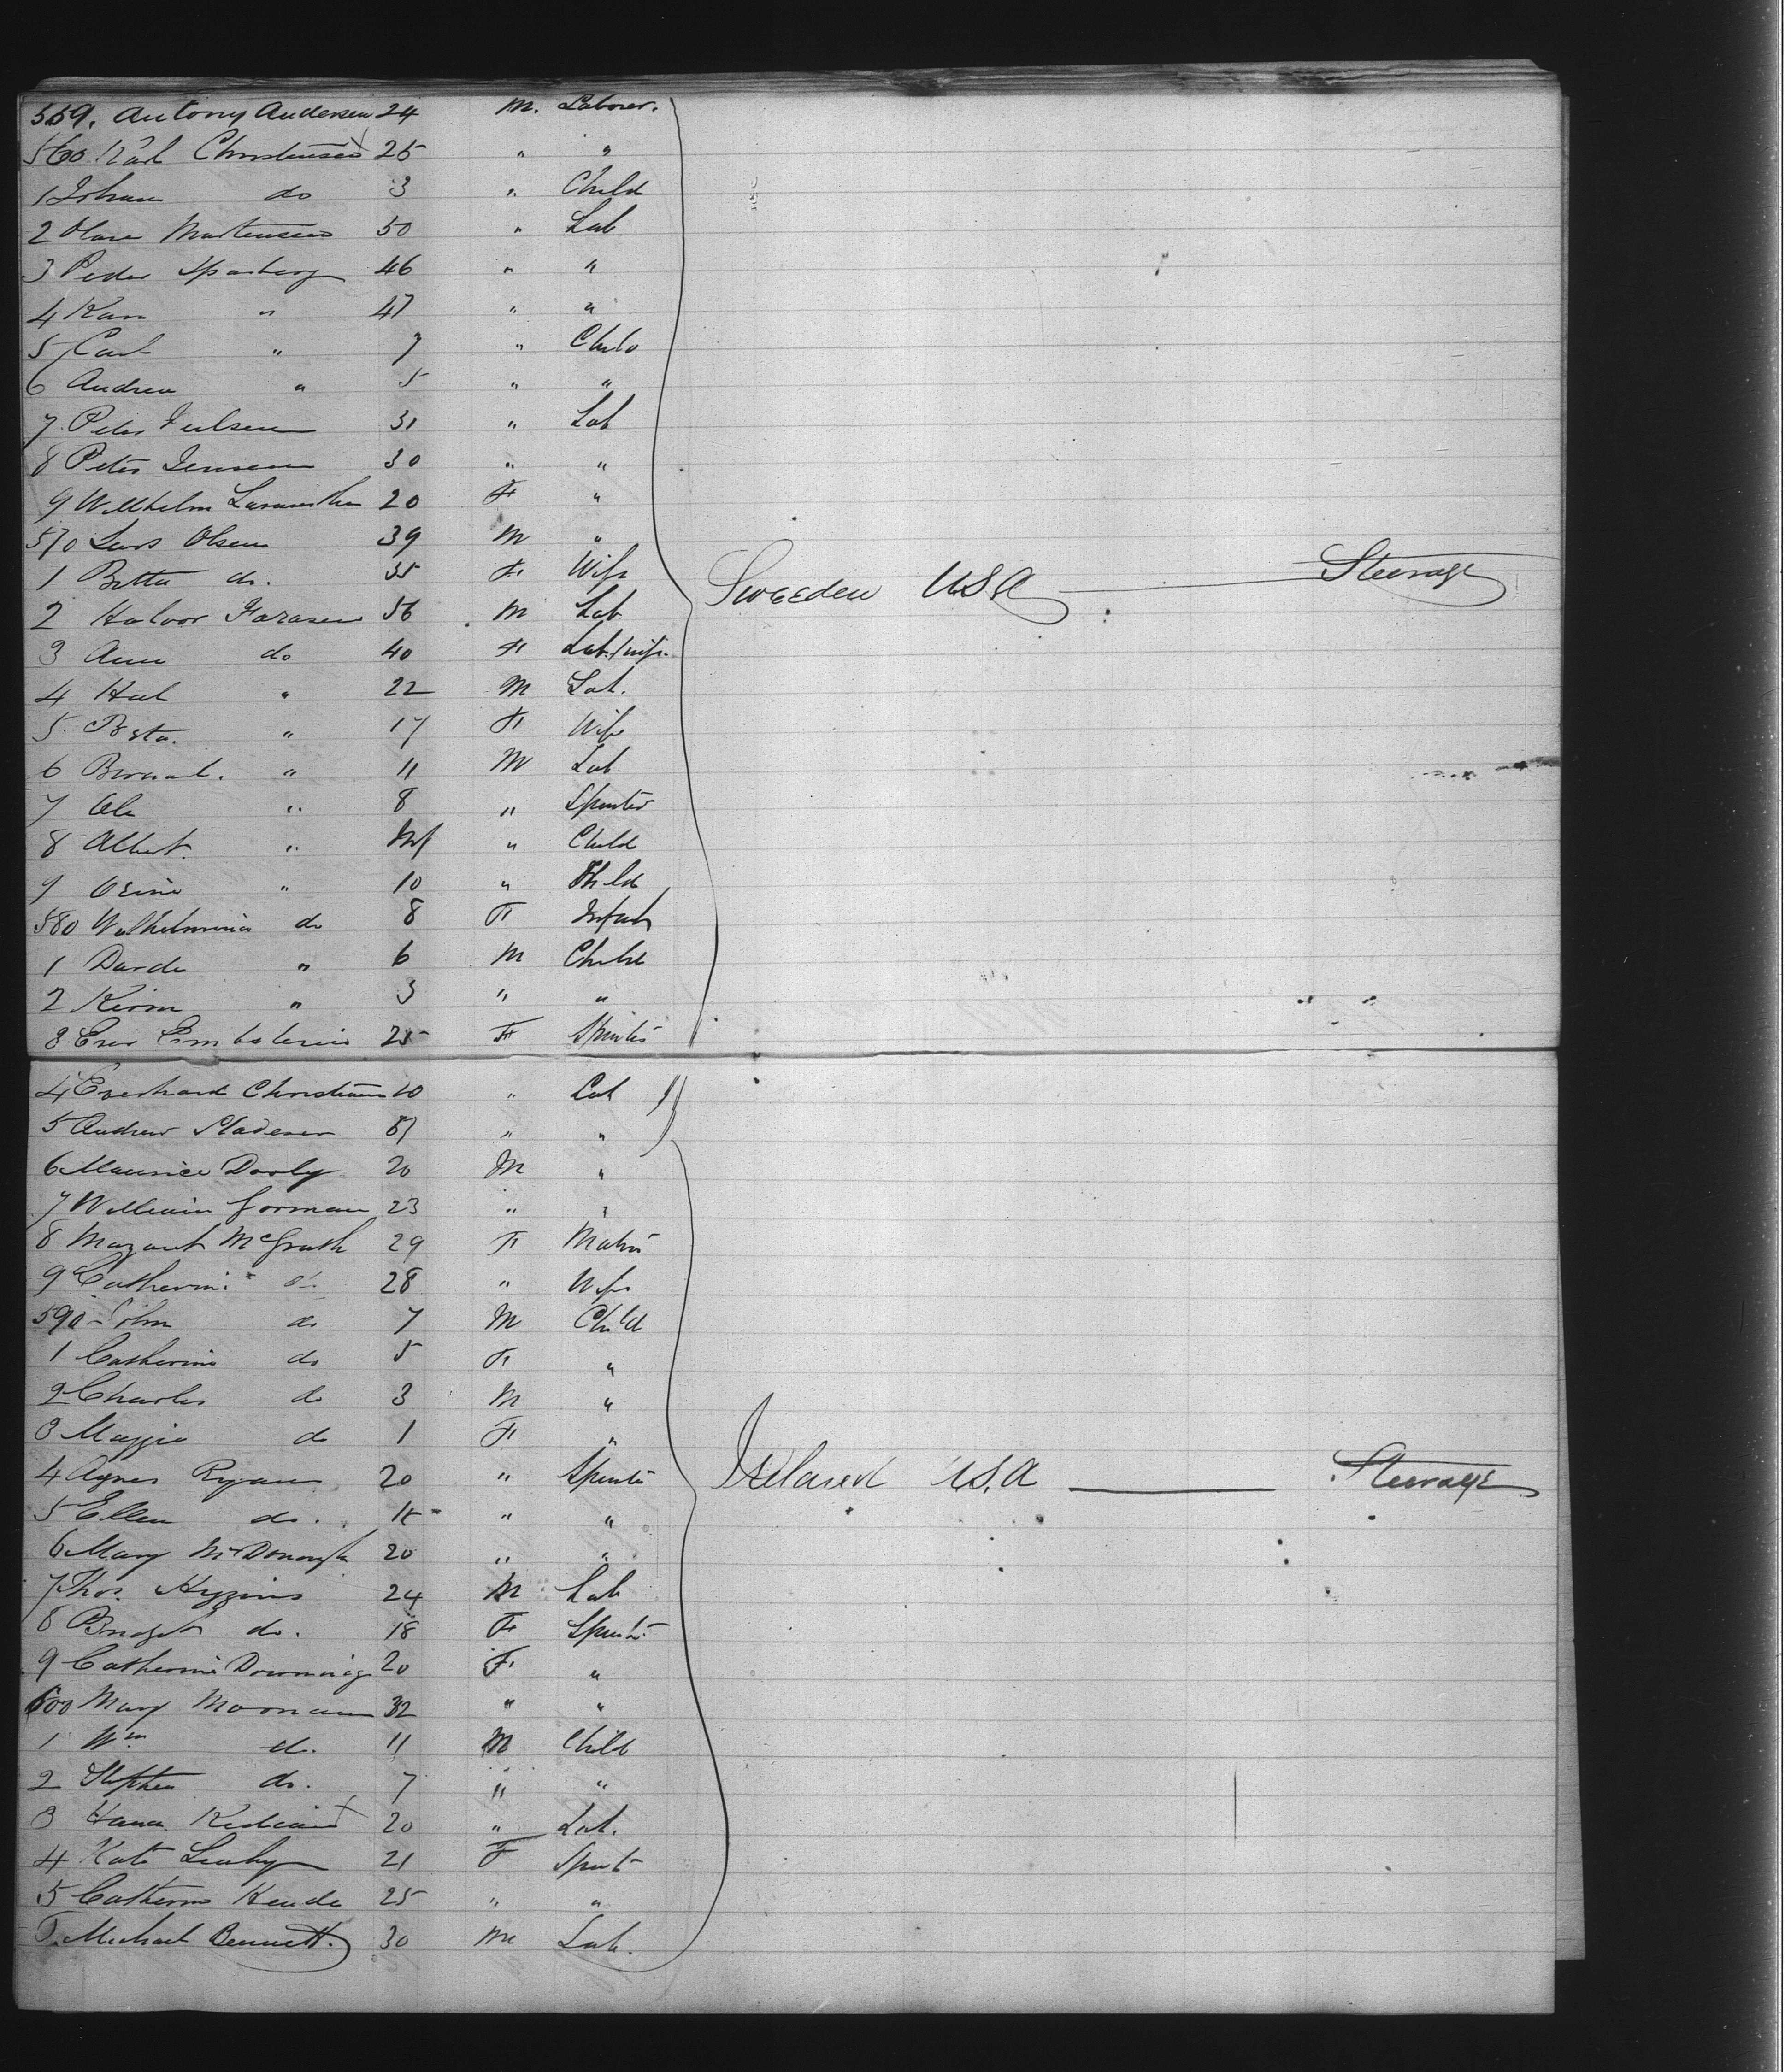 559. Antony Andersen 24 M. Laborer.
560 Karl Christensen 25 " "
1 Johan do 3 " Child
2 Hans Mortensen 50 " Lab
3 Peder 46 " "
4 Karn " 47 " "
5 Carl " 7 " Child
6 Andrea " 5 " "
7 Peter 31 " Lab
8 Peter Jensen 30 " "
9 Willhelm 20 F "
570 Lars Olsen 39 M "
1 Betta do. 35 F Wife
Sweeden USA Steerage
2 Halvor Farasen 56 M Lab
3 Ann do 40 F Lab. / wife.
4 Hal " 22 M Lab.
5 Besta. " 17 F Wife
6 " 11 M Lab
7 Ole " 8 " Spinster
8 Albert. " Inf " Child
9 " 10 " Child
580 Wilhelmina do 8 F Infant
1 " 6 M Child
2 " 3 " "
3 25 F Spinster
4 Everhard Christian 10 " Lab
5 Andrew " "
6 Maurice Dooly 20 M "
7 William Gorman 23 " "
8 Margaret McGrath 29 F Matron
9 Catherine do. 28 " Wife
590 John do 7 M Child
1 Catherine do 5 F "
2 Charles do 3 M "
3 Maggie do 1 F "
4 Agnes Ryan 20 " Spinster
Ireland U.S.A Steerage
5 Ellen do. 18 " "
6 Mary McDonough 20 " "
7 Thos. Higgins 24 M Lab
8 Bridget do. 18 F Spinster
9 Catherine Downing 20 F "
600 Mary Moonan 32 " "
1 Wm do. 11 M Child
2 Stephen do. 7 " "
3 Hana 20 " Lab.
4 Kate Leahy 21 F Spinst
5 Catherine 25 " "
6. Michael Bennett. 30 M Lab.